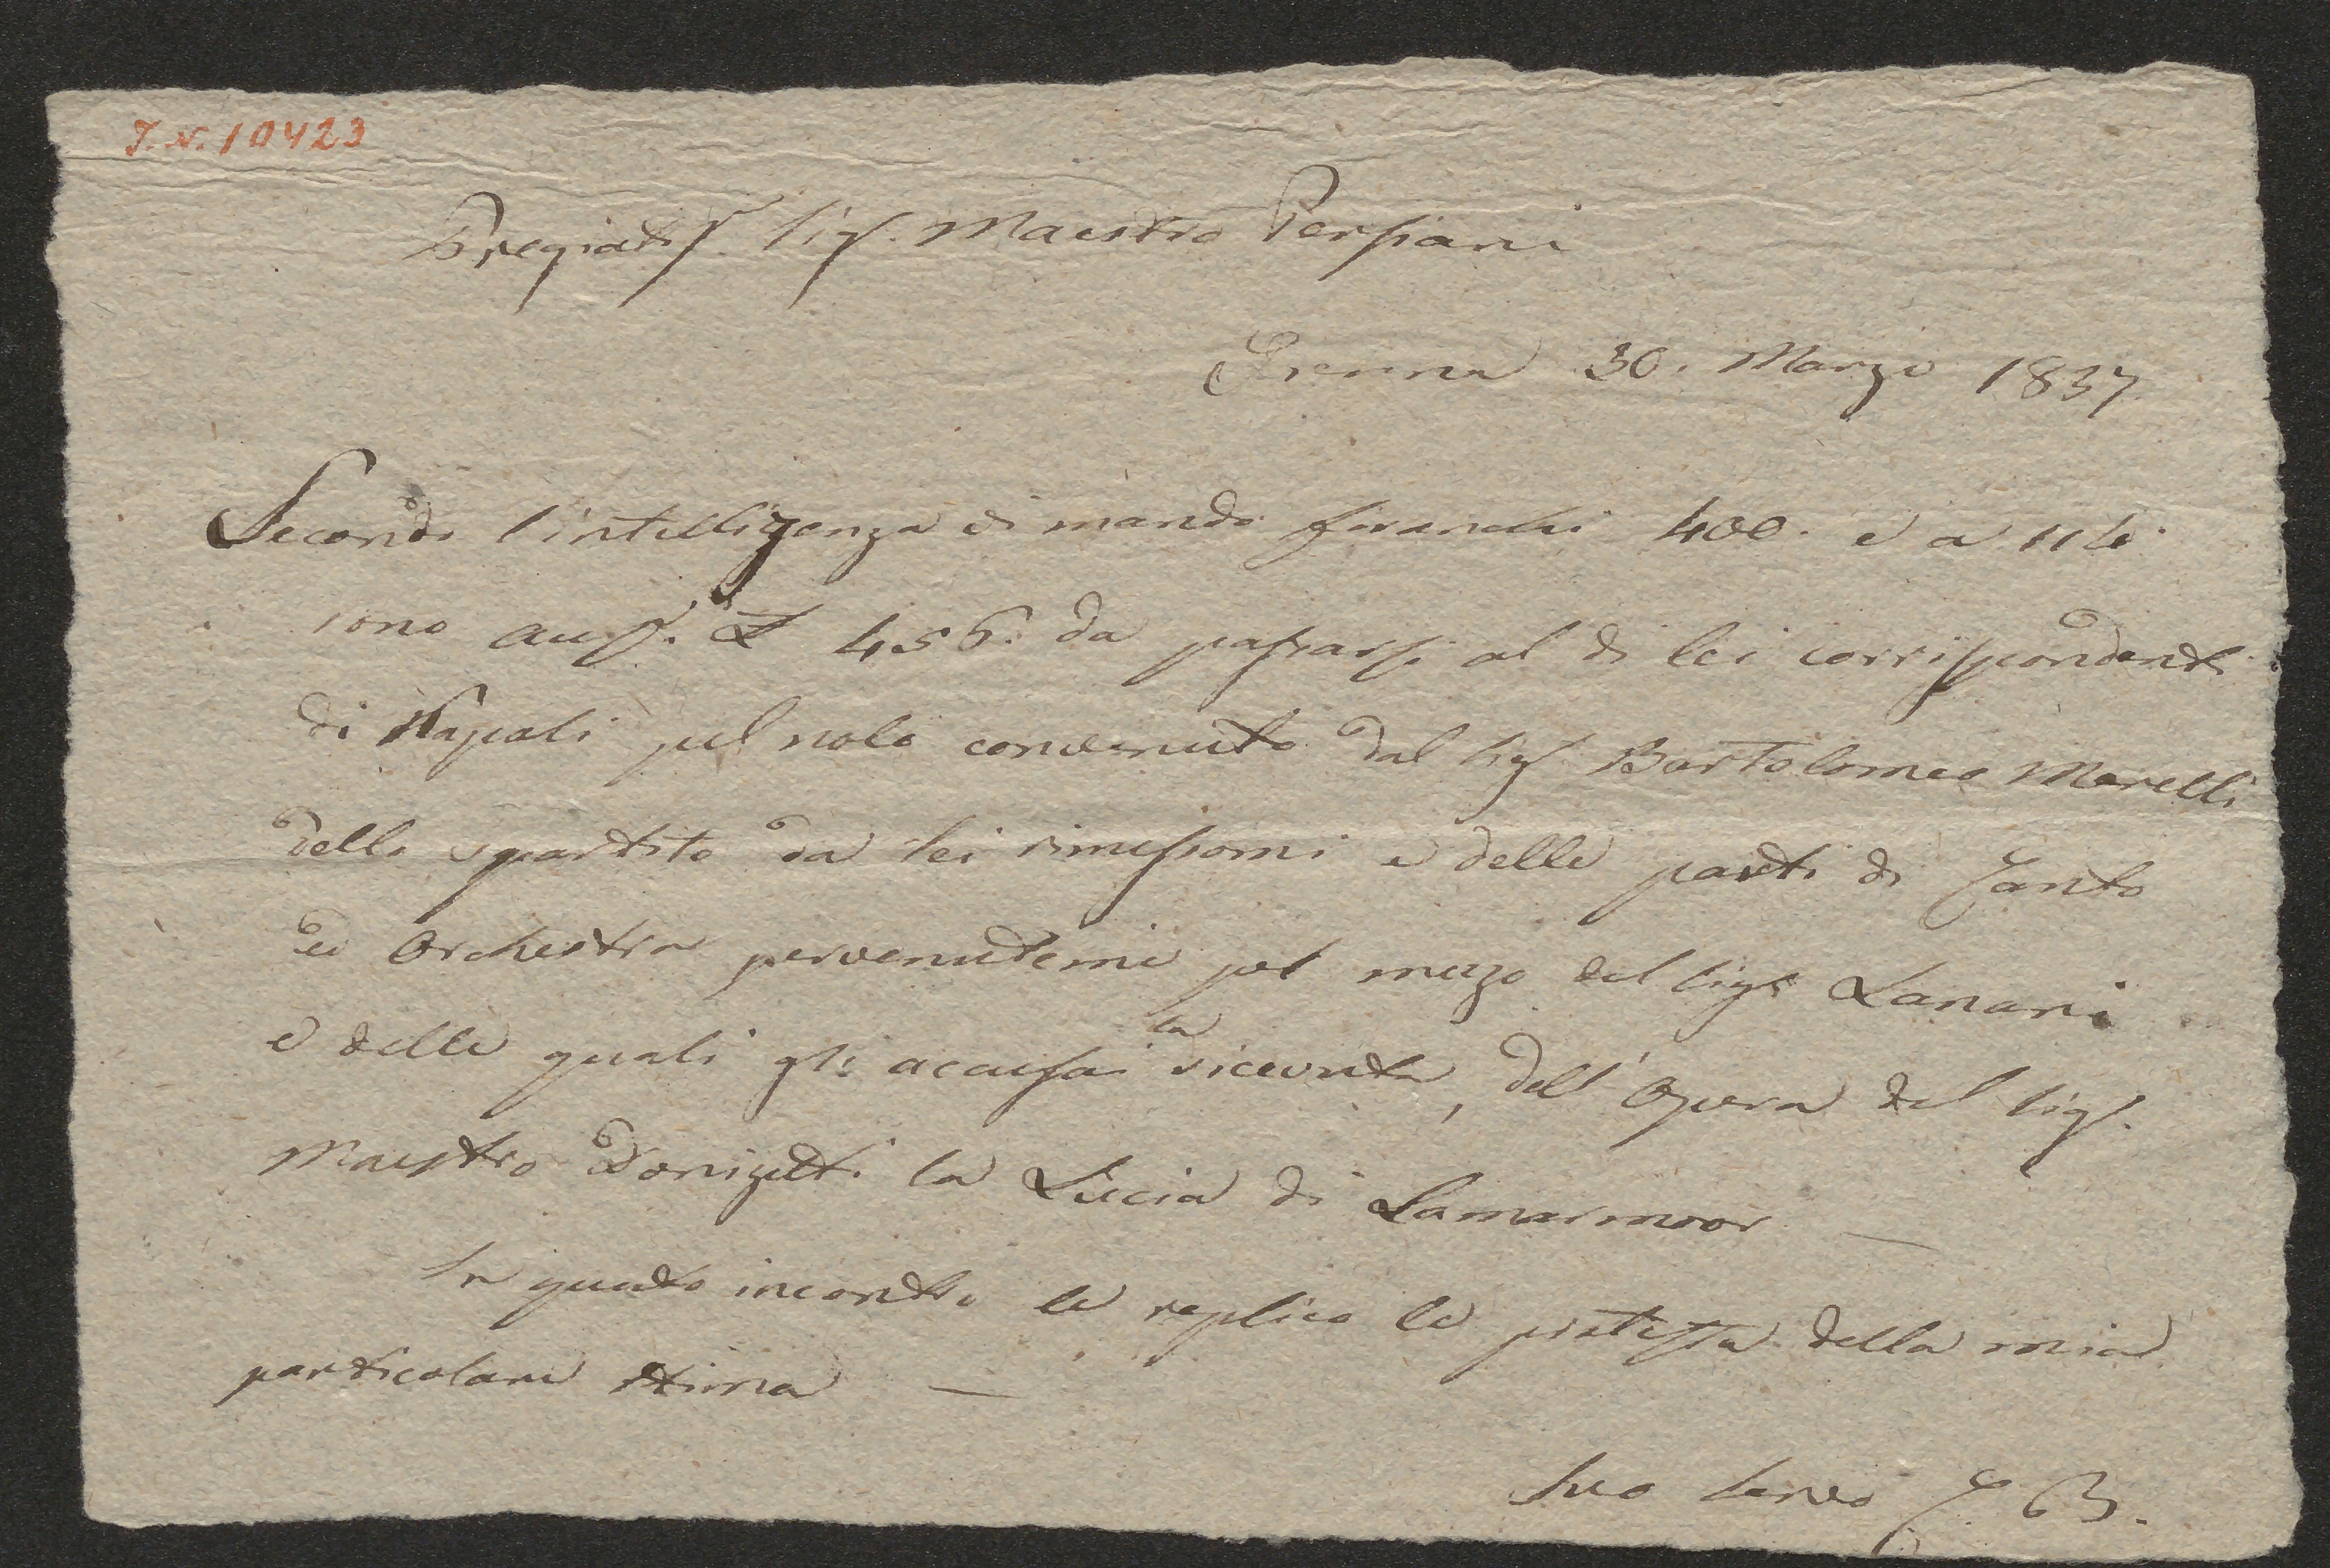 I.N. 10423
Pregiatss. Sigr. Maestro Persiani
Vienna 30. Marzo 1837
Secondo l'intelligenza di mando franchi 400. e a 114
sono aus. L 456. da passarsi al di lei corrispondente
di Napoli pel nolo convenuto dal Sigr Bartolomeo Merelli
dello spartito da lei rimessomi e delle parti di Canto
ed Orchestra pervenutemi pel mezzo del Sigr Lanari
e delle quali gli accusai la ricevuta, dell' Opera del Sigr.
Maestro Donizetti la Lucia di Lamermoor —
In questo incontro le replico le proteste della mia
particolare stima —
Suo Servo C B.